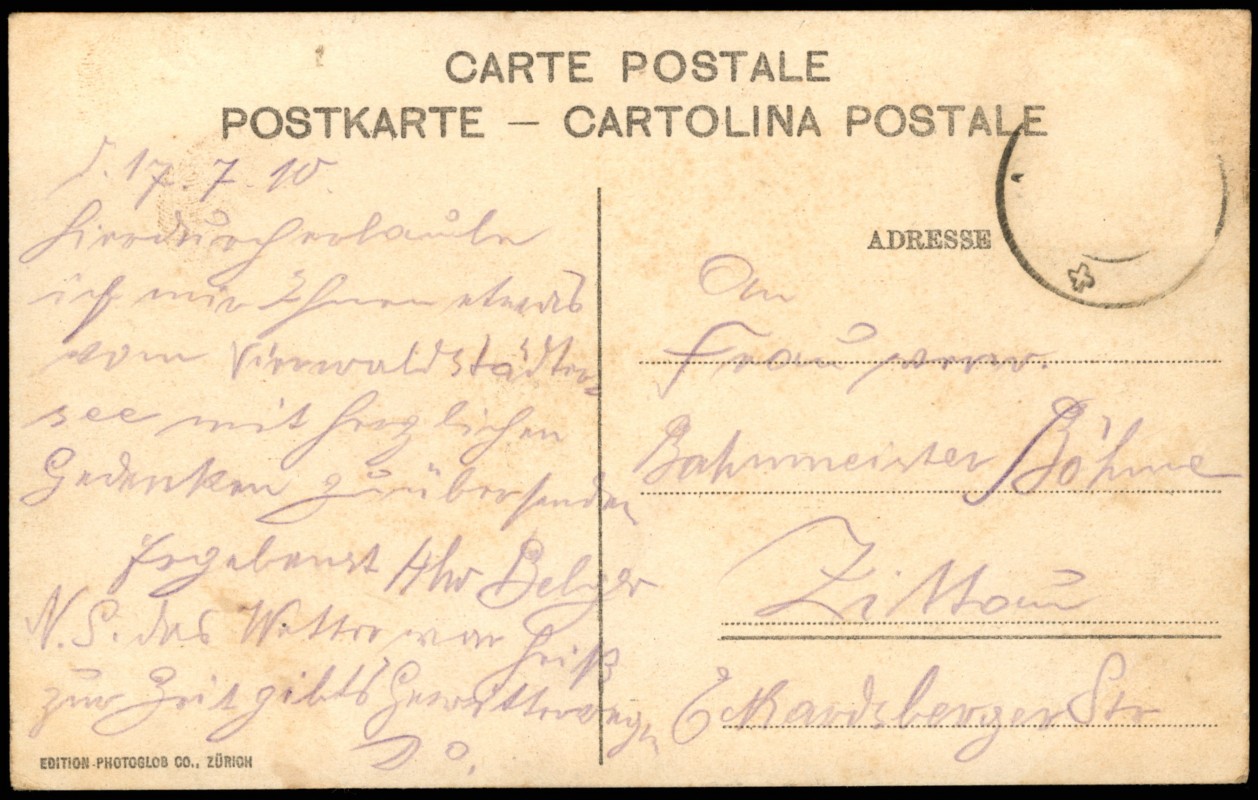 CARTE POSTALE
POSTKARTE — CARTOLINA POSTALE
d. 17. 7. 10
Hierdurch erlaube
ich mir Ihnen etwas
vom Vierwaldstädter-
see mit herzlichen
Gedenken zu übersenden
Ergebenst
N.S. das Wetter war heiß
zur Zeit gibts Gewitterregen
D O.
ADRESSE
An
Frau verw.
Bahnmeister Böhme
Zittau
Eckardsberger Str
EDITION PHOTOGLOB CO., ZÜRICH